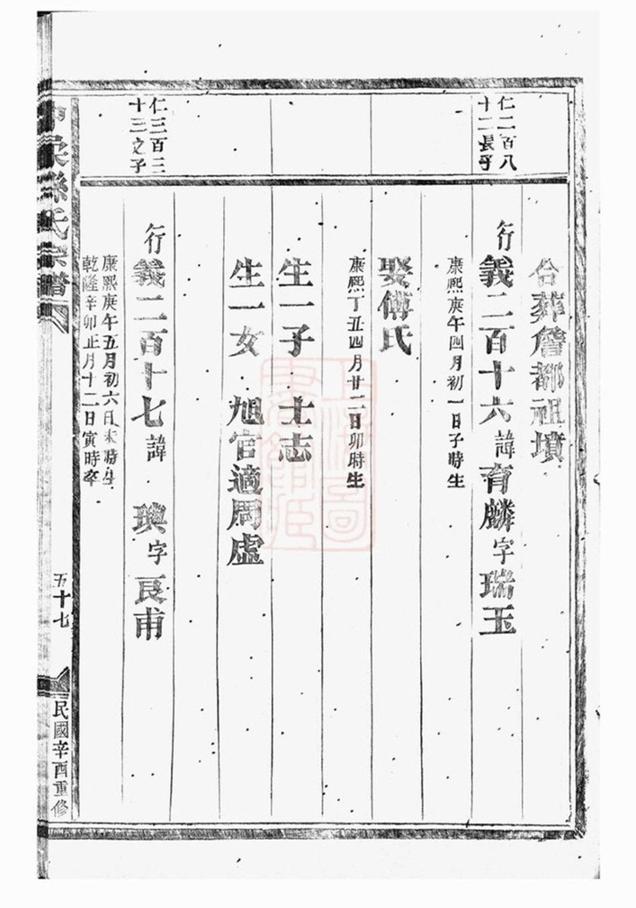 仁二百八
十二長子
合葬詹都祖墳
行義二百十六諱育麟字瑞玉
康熙庚午四月初一日子時生
娶傅氏
康熙丁丑四月廿二日卯時生
生一子 士志
生一女 旭官適周虛
仁三百三
十三之子
行義二百十七諱 璵字良甫
康熙庚午五月初六日未時生
乾隆辛卯正月十二日寅時卒
孫氏宗譜
五十七
民國辛酉重修